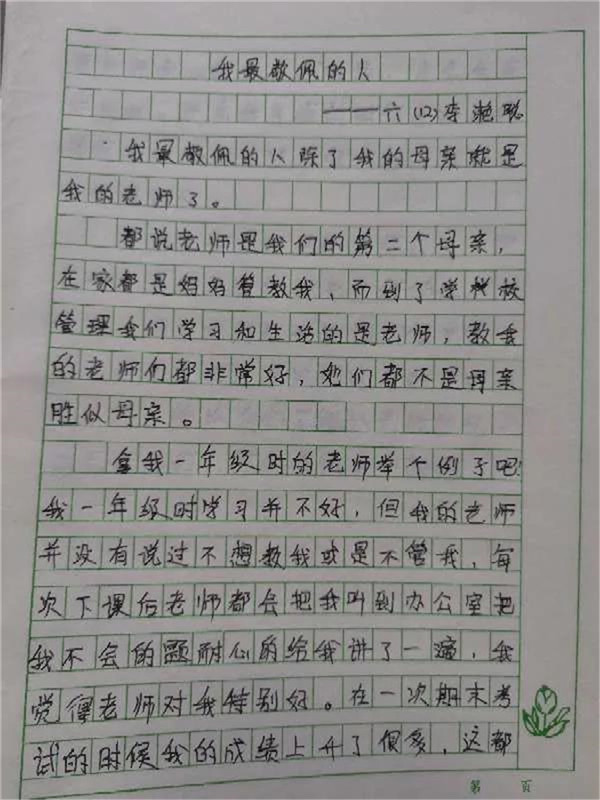 我最敬佩的人
——六(12)李滟聪
我最敬佩的人除了我的母亲就是
我的老师了。
都说老师是我们的第二个母亲，
在家都是妈妈管教我，而到了学校
管理我们学习和生活的是老师，教我
的老师们都非常好，她们都不是母亲
胜似母亲。
拿我一年级时的老师举个例子吧!
我一年级时学习并不好，但我的老师
并没有说过不想教我或是不管我，每
次下课后老师都会把我叫到办公室把
我不会的题耐心的给我讲了一遍，我
觉得老师对我特别好。在一次期末考
试的时候我的成绩上升了很多，这都
第 页